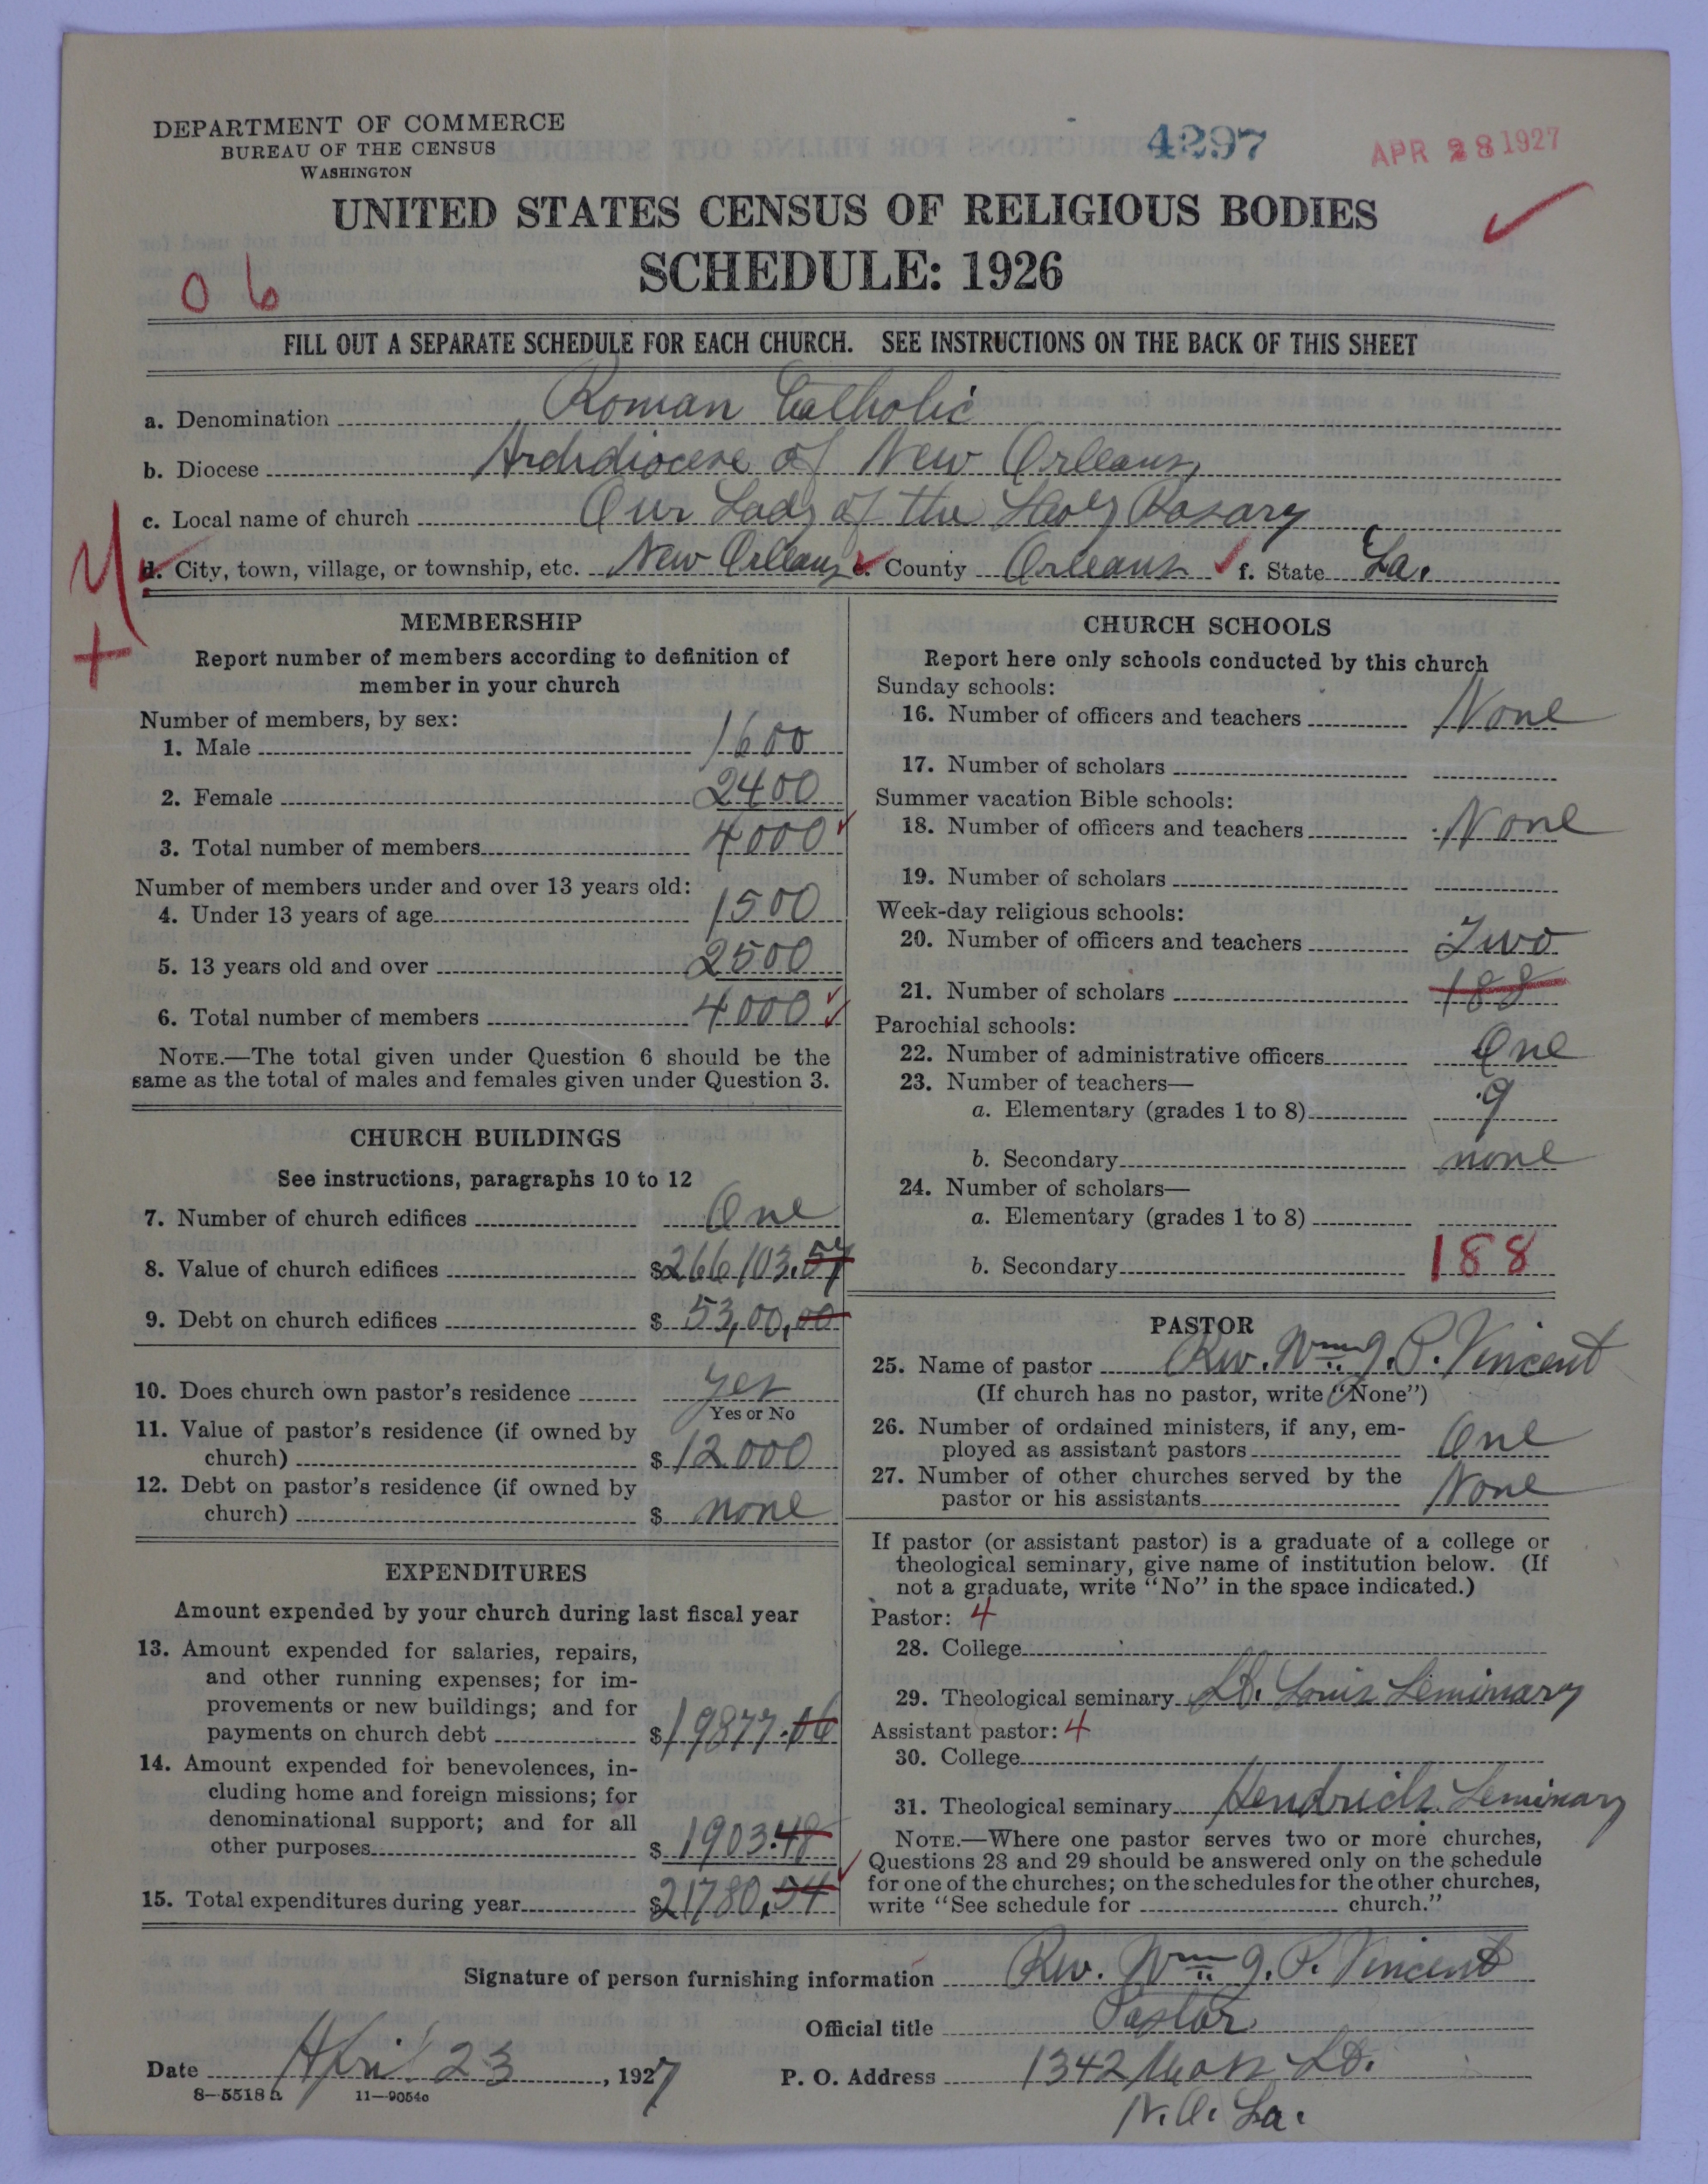 DEPARTMENT OF COMMERCE
BUREAU OF THE CENSUS
WASHINGTON
4297
APR 28 1927
UNITED STATES CENSUS OF RELIGIOUS BODIES
SCHEDULE: 1926
06
FILL OUT A SEPARATE SCHEDULE FOR EACH CHURCH. SEE INSTRUCTIONS ON THE BACK OF THIS SHEET
a. Denomination Roman Catholic
b. Diocese Archdiocese of New Orleans,
c. Local name of church Our Lady of the Holy Rosary
d. City, town, village, or township, etc. New Orleans e. County Orleans f. State La.
MEMBERSHIP
Report number of members according to definition of
member in your church
Number of members, by sex:
1. Male 1600
2. Female 2400
3. Total number of members 4000
Number of members under and over 13 years old:
4. Under 13 years of age 1500
5. 13 years old and over 2500
6. Total number of members 4000
NOTE.—The total given under Question 6 should be the
same as the total of males and females given under Question 3.
CHURCH BUILDINGS
See instructions, paragraphs 10 to 12
7. Number of church edifices One
8. Value of church edifices $266103.57
9. Debt on church edifices $53,00,00
10. Does church own pastor's residence yes
Yes or No
11. Value of pastor's residence (if owned by
church) $12000
12. Debt on pastor's residence (if owned by
church) $ none
EXPENDITURES
Amount expended by your church during last fiscal year
13. Amount expended for salaries, repairs,
and other running expenses; for im-
provements or new buildings; and for
payments on church debt $19877.06
14. Amount expended for benevolences, in-
cluding home and foreign missions; for
denominational support; and for all
other purposes $1903.48
15. Total expenditures during year $21780.54
CHURCH SCHOOLS
Report here only schools conducted by this church
Sunday schools:
16. Number of officers and teachers None
17. Number of scholars
Summer vacation Bible schools:
18. Number of officers and teachers None
19. Number of scholars
Week-day religious schools:
20. Number of officers and teachers Two
21. Number of scholars 188
Parochial schools:
22. Number of administrative officers One
23. Number of teachers—
a. Elementary (grades 1 to 8) 9
b. Secondary none
24. Number of scholars—
a. Elementary (grades 1 to 8)
b. Secondary 188
PASTOR
25. Name of pastor Rev. Wm. J. P. Vincent
(If church has no pastor, write "None")
26. Number of ordained ministers, if any, em-
ployed as assistant pastors One
27. Number of other churches served by the
pastor or his assistants None
If pastor (or assistant pastor) is a graduate of a college or
theological seminary, give name of institution below. (If
not a graduate, write "No" in the space indicated.)
Pastor: 4
28. College
29. Theological seminary St. Louis Seminary
Assistant pastor: 4
30. College
31. Theological seminary Seminary
NOTE.—Where one pastor serves two or more churches,
Questions 28 and 29 should be answered only on the schedule
for one of the churches; on the schedules for the other churches,
write "See schedule for church."
Signature of person furnishing information Rev. Wm. J. P. Vincent
Official title Pastor
Date April 23, 1927 P. O. Address 1342 Moss St.
8-5518a 11-9054c N.O. La.